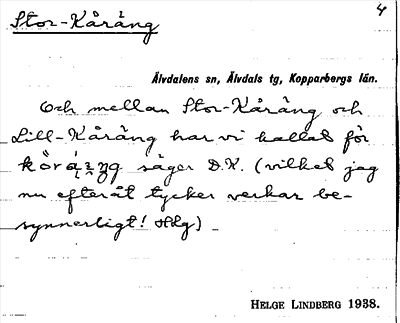 Stor-Kåräng
4
Älvdalens sn, Älvdals tg, Kopparbergs län.
Och mellan Stor-Kåräng och
Lill-Kåräng har vi kallat för
säger D.K. (vilket jag
nu efteråt tycker verkar be-
synnerligt! Hlg)
HELGE LINDBERG 1938.